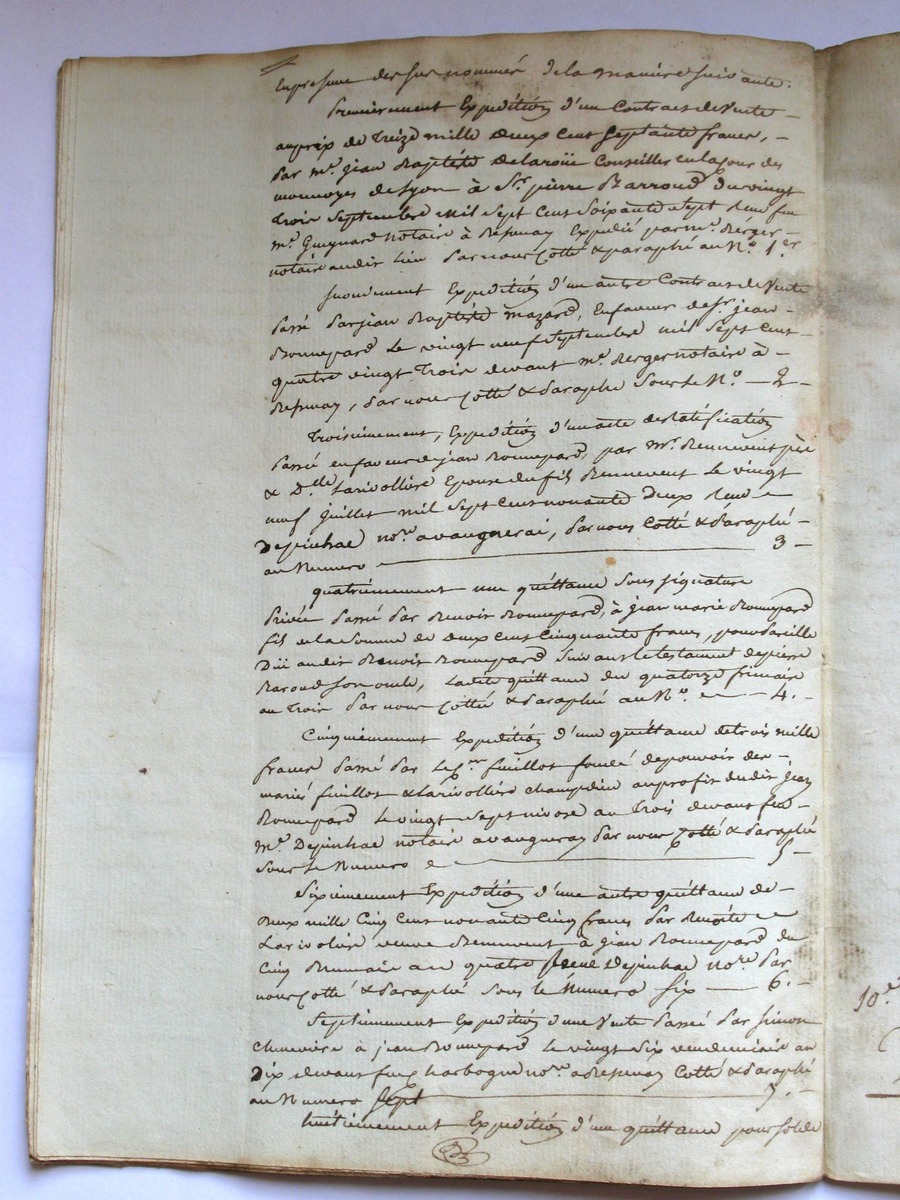 En presence des sus nommés de la maniere suivante.
Premièrement Expedition d'un Contract de Vente
au prix de Treize mille deux cent Septante francs, -
par Mr. jean Baptiste delaroüe Conseiller en la Cour des
monnoyes de Lyon à Sr. pierre Barroud du vingt
Trois Septembre mil Sept Cent Soixante et Sept Recu feu
Mr. Guignard notaire à Bessenay Expedié par Mr. Berger -
notaire audit Lieu par nous Cotté & paraphé au No. 1er
Secondement Expedition d'un autre Contract de Vente
Passé Par jean Baptiste mazard, En faveur de Sr. jean -
Bonnepard Le vingt neuf Septembre mil Sept Cent
quatre vingt Trois devant Mr. Berger notaire à -
Bessenay, Par nous Cotté & Paraphé Sous le No. — 2 -
Troisiemement, Expedition d'un acte de Ratification
Passé en faveur de jean Bonnepard, par Mr. Rennevent père
& Dlle. Larivollière Epouse du fils Rennevent Le vingt
neuf juillet mil Sept Cent nonante Deux Recu
Depinhac nore. a vaugnerai, Par nous Cotté & Paraphé -
au Numero — 3 -
quatriemement une quittance Sous signature
Privée Passé Par Benoit Bonnepard, à jean marie Bonnepard
fils de la Somme de deux cent Cinquante francs, pour Pareille
Dûe audit Benoit Bonnepard Suivant le testament de pierre
Baroud son oncle, Ladite quittance du quatorze frimaire
an Trois Par nous Cotté & Paraphé au No. — 4. -
Cinquiemement Expedition d'une quittance de trois mille
francs Passé Par Le Cen. fuillot fondé de pouvoir des -
mariés fuillot & Larivollière Champdieu au profit dudit jean
Bonnepard Le vingt Sept nivose an Trois devant feu -
Mr. Depinhac notaire a vaugneray Par nous Cotté & Paraphé
Sous le Numero — 5 -
Sixiemement Expedition d'une autre quittance de -
Deux mille Cinq Cent nonante Cinq francs Par Benoite
Larivoliere veuve Rennevent à jean Bonnepard du
Cinq Brumaire an quatre Recue Depinhac nore. Par
nous Cotté & Paraphé Sous le Numero Six — 6. -
Septiemement Expedition d'une Vente Passée Par Simon
Cheneviere à jean Bonnepard Le vingt Six vendemiaire an
Dix devant feu Charbogne nore. a Bessenay Cotté & Paraphé
au Numero Sept — 7. -
huitiemement Expedition d'une quittance pour solde
10.e